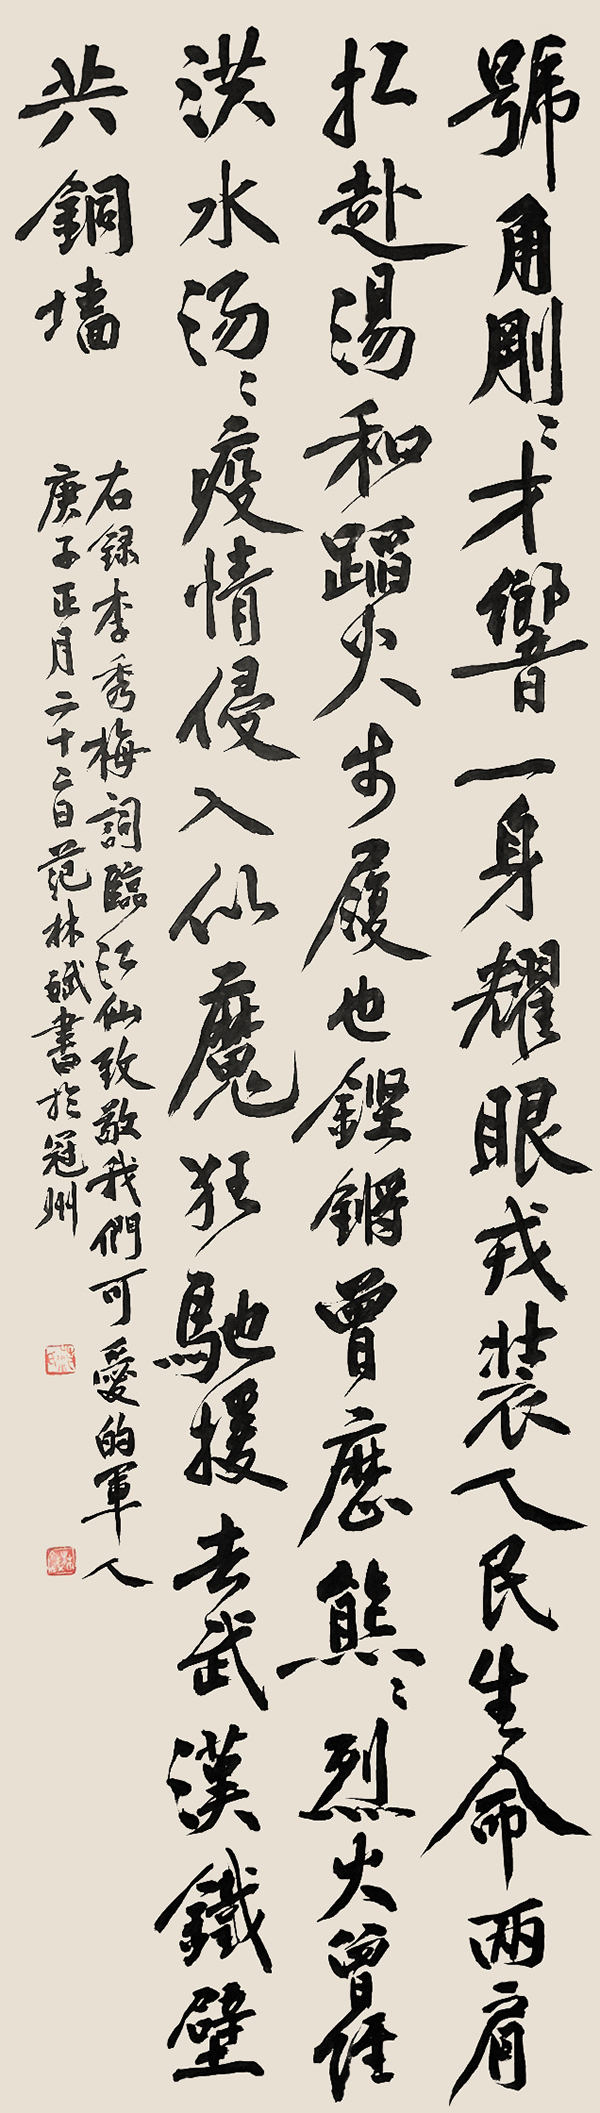 號角剛〻才響一身耀眼戎裝人民生命兩肩
扛赴湯和蹈火步履也鏗鏘曾歷熊〻烈火曾經
洪水汤〻疫情侵入似魔狂馳援去武漢鐵壁
共銅墙
右録李秀梅詞臨江仙致敬我們可愛的軍人
庚子正月二十二日范林斌書於冠州